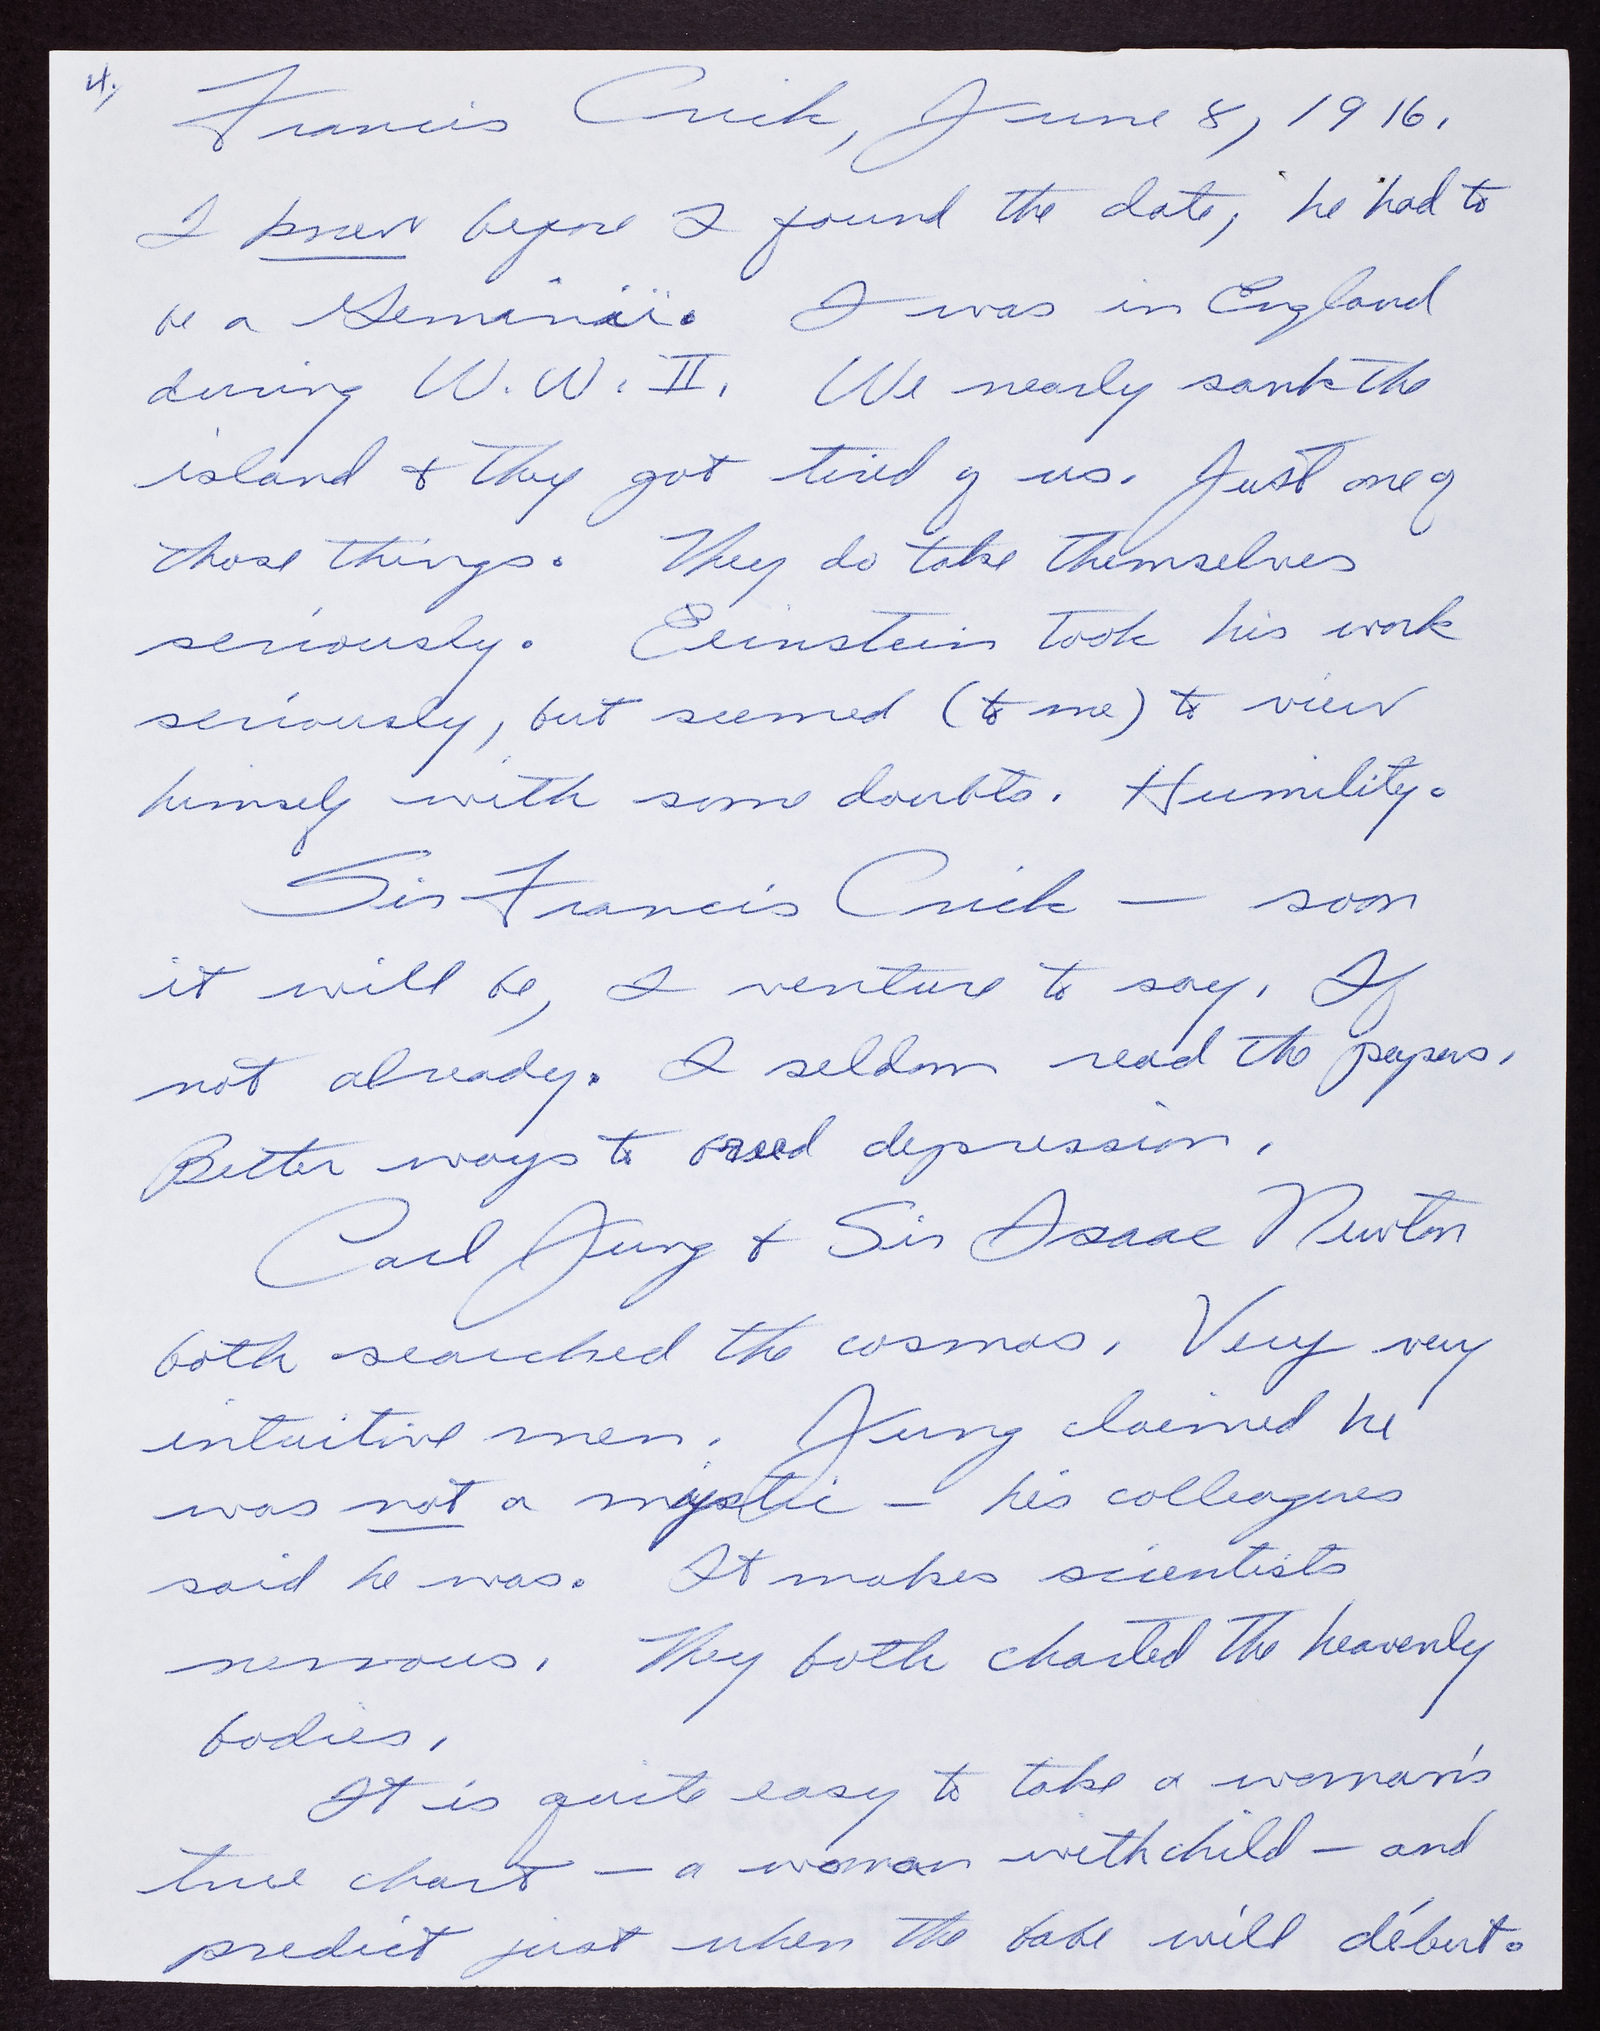 4,
Francis Crick, June 8, 1916.
I knew before I found the date, he had to
be a Geminii. I was in England
during W.W. II. We nearly sank the
island & they got tired of us. Just one of
those things. They do take themselves
seriously. Eeinstein took his work
seriously, but seemed (to me) to view
himself with some doubts. Humility.
Sir Francis Crick — soon
it will be, I venture to say. If
not already. I seldom read the papers.
Better ways to breed depression.
Carl Jung & Sir Isaac Newton
both searched the cosmos. Very very
intuitive men. Jung claimed he
was not a mystic – his colleagues
said he was. It makes scientists
nervous. They both charted the heavenly
bodies.
It is quite easy to take a woman's
true chart – a woman with child – and
predict just when the babe will début.